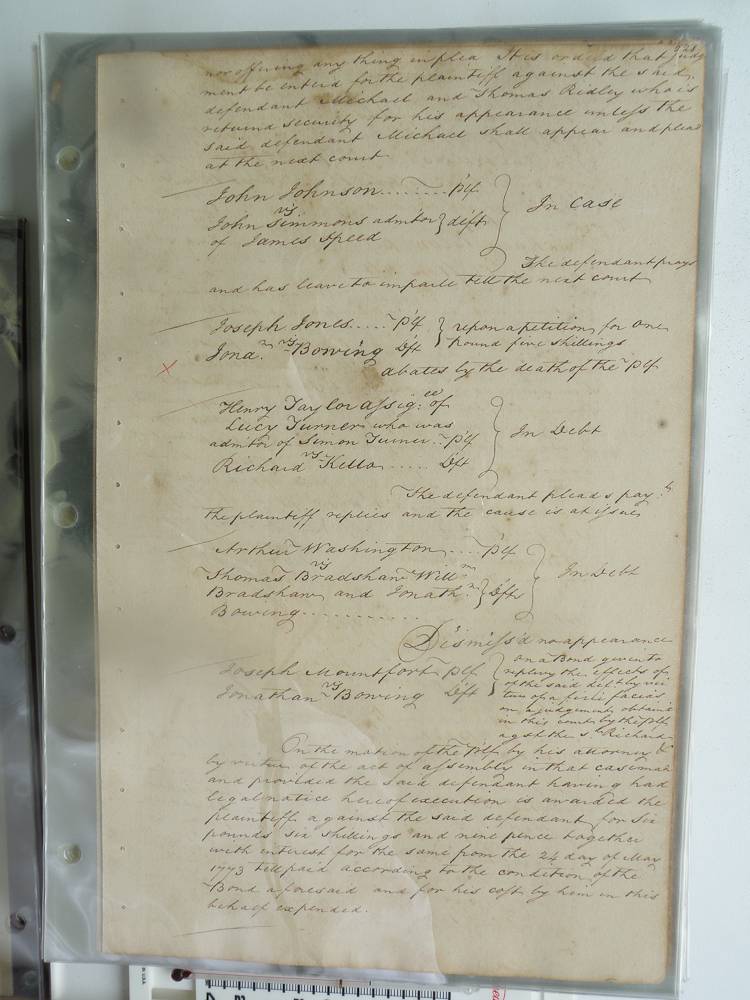 nor offering any thing in plea It is orderd that Judg
ment be enterd for the plaintiff against the said
defendant Michael and Thomas Ridley who is
returnd security for his appearance unless the
said defendant Michael shall appear and plead
at the next court
John Johnson ........ Plf
vs
In Case
John Simmons admitor } deft
of James Speed
The defendant prays
and has leave to imparle till the next court
Joseph Jones .... Plf } upon a petition for one
vs
Jona.n Bowing Dft } pound five shillings
abates by the death of the Plf
Henry Taylor assig.ee of
Lucy Turner who was
In Debt
admitor of Simon Turner .. Plf
vs
Richard Kello ..... Dft
The defendant pleads pay.t
the plaintiff replies and the cause is at issue
Arthur Washington .... Plf
vs
In Debt
Thomas Bradshaw Will.m
Bradshaw and Jonath.n } Dfts
Bowing ............
Dismiss'd no appearance
Joseph Mountfort Plf
vs
Jonathan Bowing Dft
on a Bond given to
replevy the effects of
of the said Dft by vir
tue of a fieri facias
on a judgement obtain'd
in this court by the Plf
agst the s.d Richard
On the motion of the Plf by his attorney &
by virtue of the act of assembly in that case made
and provided the said defendant having had
legal notice hereof execution is awarded the
plaintiff against the said defendant for six
pounds six shillings and nine pence together
with interest for the same from the 24 day of May
1773 till paid according to the condition of the
Bond aforesaid and for his cost by him in this
behalf expended.